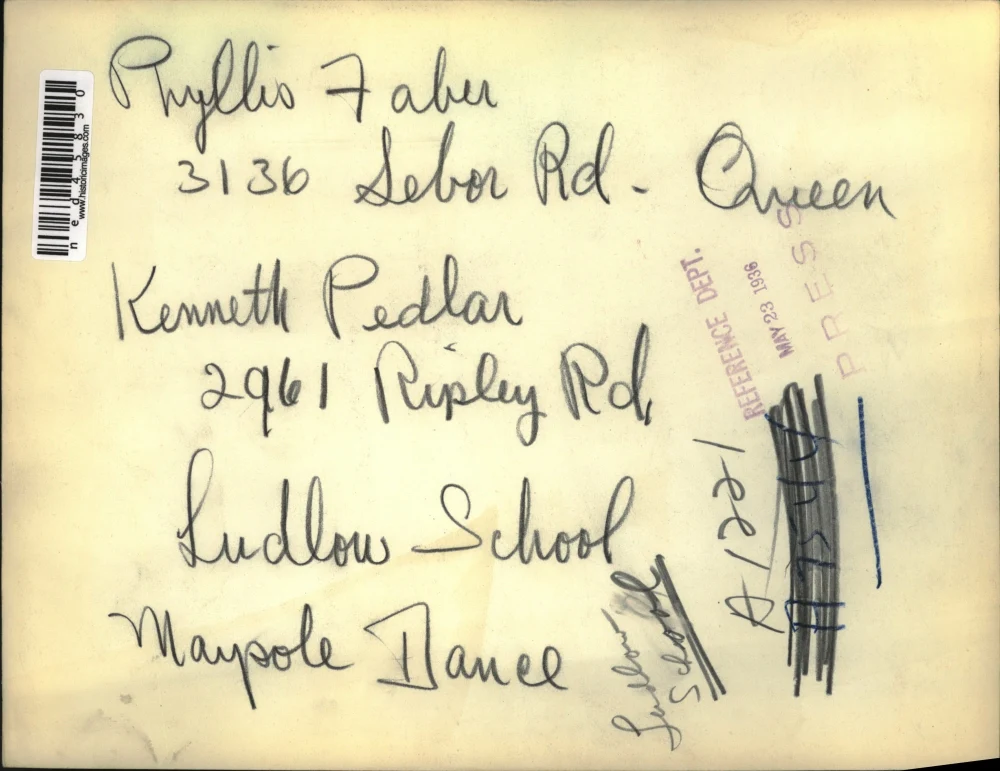 Phyllis Faber
3136 Sebor Rd - Queen
Kenneth Pedlar
2961 Ripley Rd.
Ludlow School
Maypole Dance
Ludlow
School
A 1221
A 7544
REFERENCE DEPT.
MAY 23 1936
PRESS
www.historicimages.com
ned45830